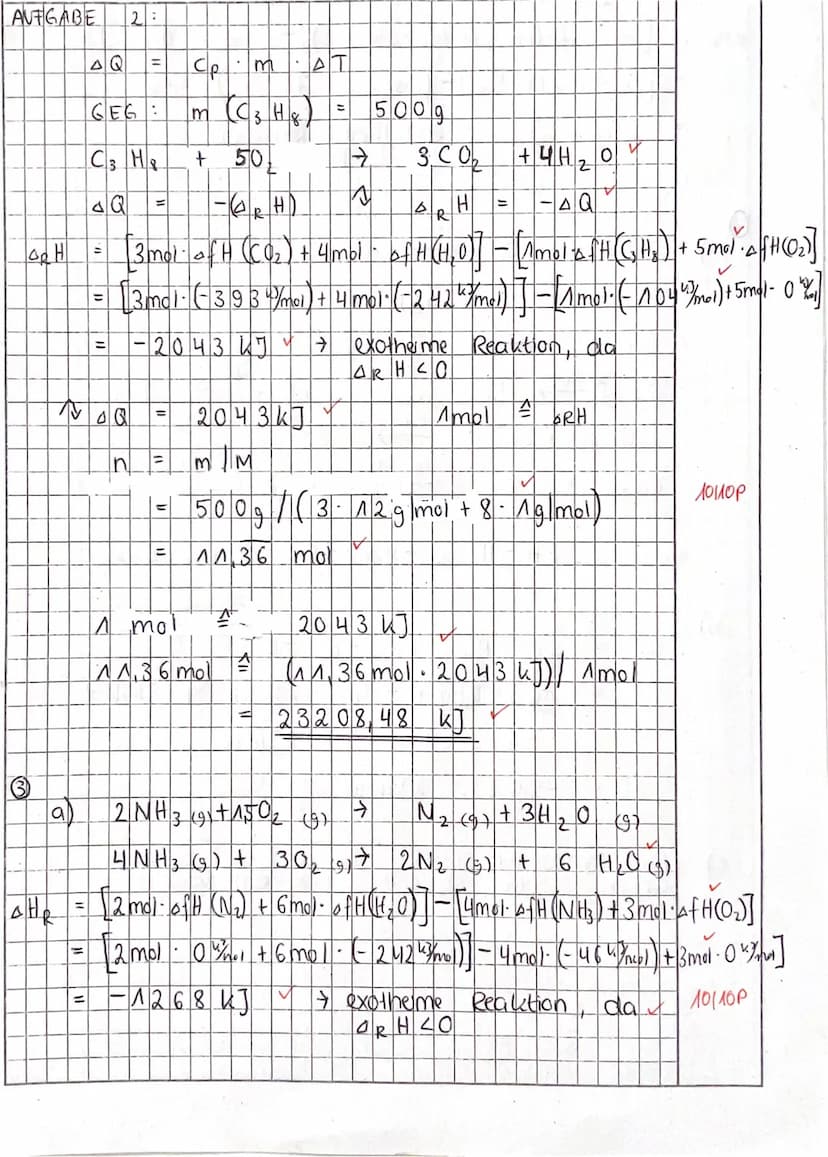 AUFGABE 2:
ΔQ = Cp · m · ΔT
GEG: m (C₃H₈) = 500g
C₃H₈ + 5O₂ → 3CO₂ + 4H₂O ✓
ΔQ = -(ΔRH) ↷ ΔRH = -ΔQ ✓
ΔRH = [3mol · ΔfH(CO₂) + 4mol · ΔfH(H₂O)] - [1mol · ΔfH(C₃H₈) + 5mol · ΔfH(O₂)] ✓
= [3mol · (-393 kJ/mol) + 4mol · (-242 kJ/mol)] - [1mol · (-104 kJ/mol) + 5mol · 0 kJ/mol] ✓
= -2043 kJ ✓ → exotherme Reaktion, da
ΔRH < 0
↷ ΔQ = 2043 kJ ✓ 1mol ≙ ΔRH
n = m/M
= 500g / (3 · 12g/mol + 8 · 1g/mol) ✓
10/10P
= 11,36 mol ✓
1 mol ≙ 2043 kJ ✓
11,36mol ≙ (11,36mol · 2043 kJ) / 1mol
= 23208,48 kJ ✓
③
a) 2NH₃ (g) + 1,5O₂ (g) → N₂ (g) + 3H₂O (g)
4NH₃ (g) + 3O₂ (g) → 2N₂ (g) + 6 H₂O (g) ✓
ΔHR = [2mol · ΔfH(N₂) + 6mol · ΔfH(H₂O)] - [4mol · ΔfH(NH₃) + 3mol · ΔfH(O₂)] ✓
= [2mol · 0 kJ/mol + 6mol · (-242 kJ/mol)] - 4mol · (-46 kJ/mol) + 3mol · 0 kJ/mol] ✓
= -1268 kJ ✓ → exotherme Reaktion, da ✓ 10/10P
ΔRH < 0